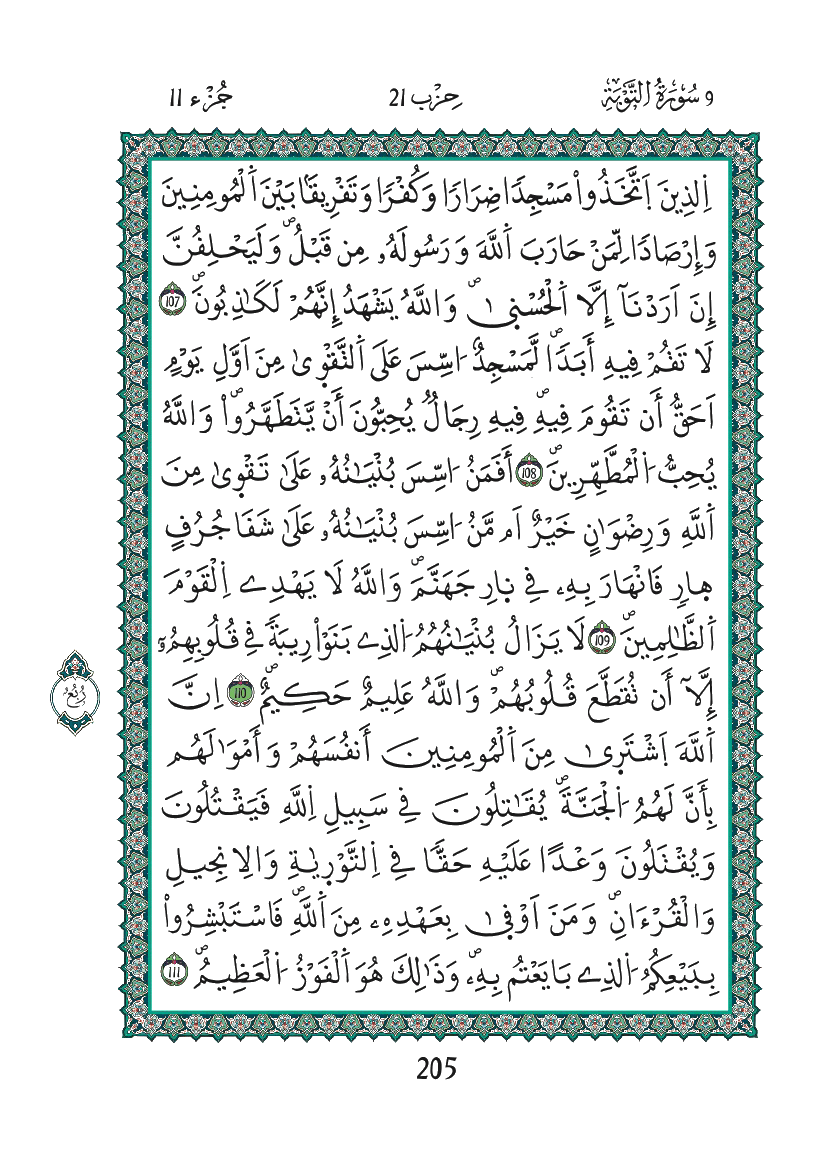 9 سُورَةُ التَّوْبَةِ
حِزْب 21
جُزْء 11
اِ۬لذِينَ اَ۪تَّخَذُواْ مَسْجِدٗا ضِرَارٗا وَكُفْرٗا وَتَفْرِيقَاۢ بَيْنَ اَ۬لْمُومِنِينَ
وَإِرْصَادٗا لِّمَنْ حَارَبَ اَ۬للَّهَ وَرَسُولَهُۥ مِن قَبْلُۖ وَلَيَحْلِفُنَّ
إِنَ اَرَدْنَآ إِلَّا اَ۬لْحُسْن۪يٰۖ وَاللَّهُ يَشْهَدُ إِنَّهُمْ لَكَٰذِبُونَۖ 107
لَا تَقُمْ فِيهِ أَبَدٗاۖ لَّمَسْجِدٌ ا۟سِّسَ عَلَى اَ۬لتَّقْو۪يٰ مِنَ اَوَّلِ يَوْمٍ
اَحَقُّ أَن تَقُومَ فِيهِۖ فِيهِ رِجَالٞ يُحِبُّونَ أَنْ يَّتَطَهَّرُواْۖ وَاللَّهُ
يُحِبُّ اُ۬لْمُطَّهِّرِينَۖ 108 أَفَمَنُ ا۟سِّسَ بُنْيَٰنُهُۥ عَلَىٰ تَقْو۪يٰ مِنَ
اَ۬للَّهِ وَرِضْوَٰنٍ خَيْرٌ اَم مَّنُ ا۟سِّسَ بُنْيَٰنُهُۥ عَلَىٰ شَفَا جُرُفٍ
ه۪ارٖ فَانْهَارَ بِهِۦ فِے ن۪ارِ جَهَنَّمَۖ وَاللَّهُ لَا يَهْدِے اِ۬لْقَوْمَ
اَ۬لظَّٰلِمِينَۖ 109 لَا يَزَالُ بُنْيَٰنُهُمُ اُ۬لذِے بَنَوْاْ رِيبَةٗ فِے قُلُوبِهِمُۥٓ
إِلَّآ أَن تُقَطَّعَ قُلُوبُهُمْۖ وَاللَّهُ عَلِيمٌ حَكِيمٌۖ 110 اِنَّ
اَ۬للَّهَ اَ۪شْتَر۪يٰ مِنَ اَ۬لْمُومِنِينَ أَنفُسَهُمْ وَأَمْوَٰلَهُم
بِأَنَّ لَهُمُ اُ۬لْجَنَّةَۖ يُقَٰتِلُونَ فِے سَبِيلِ اِ۬للَّهِ فَيَقْتُلُونَ
وَيُقْتَلُونَ وَعْدًا عَلَيْهِ حَقّٗا فِے اِ۬لتَّوْر۪يٰةِ وَالِانجِيلِ
وَالْقُرْءَانِۖ وَمَنَ اَوْف۪يٰ بِعَهْدِهِۦ مِنَ اَ۬للَّهِۖ فَاسْتَبْشِرُواْ
بِبَيْعِكُمُ اُ۬لذِے بَايَعْتُم بِهِۦۖ وَذَٰلِكَ هُوَ اَ۬لْفَوْزُ اُ۬لْعَظِيمُۖ 111
رُبُعُ
205